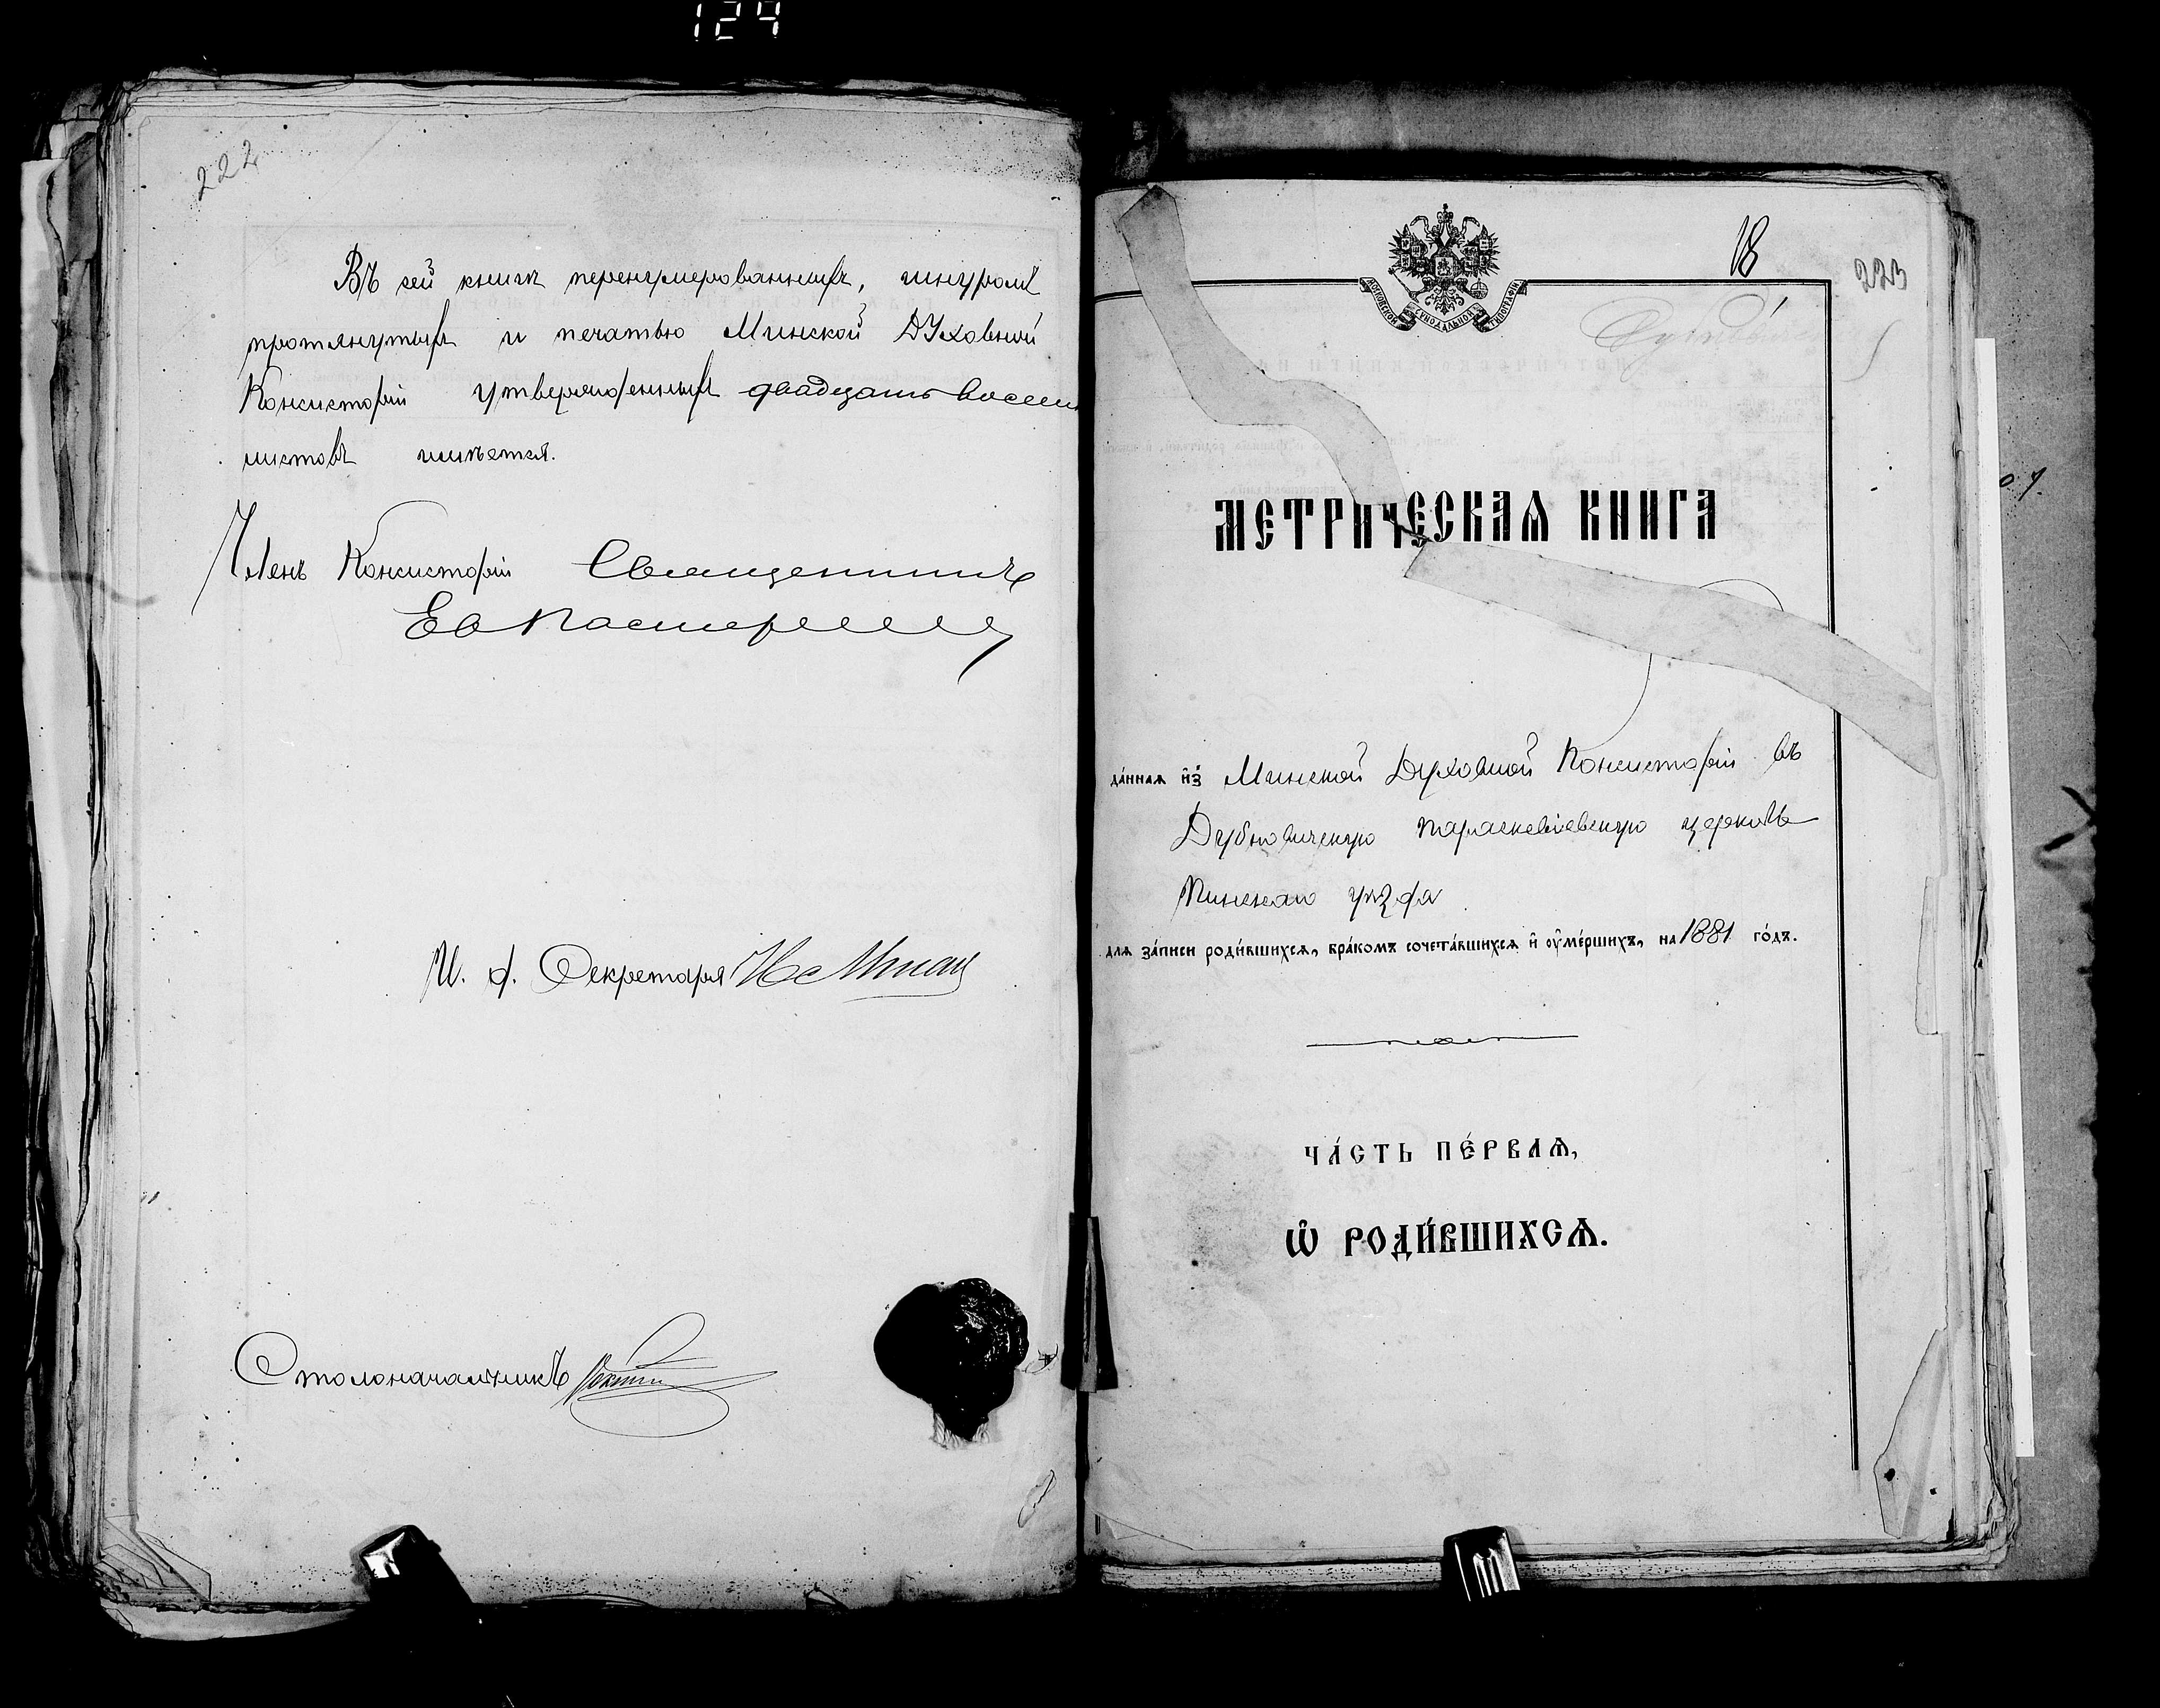 124
222
Въ сей книгѣ перенумерованныхъ, шнуромъ
протянутыхъ и печатью Минской Духовной
Консисторіи утвержденныхъ двадцать восемь
листовъ имѣется.
Членъ Консисторіи Священникъ
И. д. Секретаря
Столоначальникъ
18
223
МОСКОВСКОЙ СѴНОДАЛЬНОЙ ТИПОГРАФІИ
МЕТРИЧЕСКАѦ КНИГА
да́ннаѧ и҆з̾ Минской Духовной Консисторіи въ
Дубновичскую Параскевіевскую церковь
Пинскаго уѣзда
длѧ за́писи роди́вшихсѧ, бра́комъ сочета́вшихсѧ и҆ ᲂу҆ме́ршихъ, на 1881 го́дъ.
ЧА́СТЬ ПЕ́РВАѦ,
Ѽ РОДИ́ВШИХСѦ.